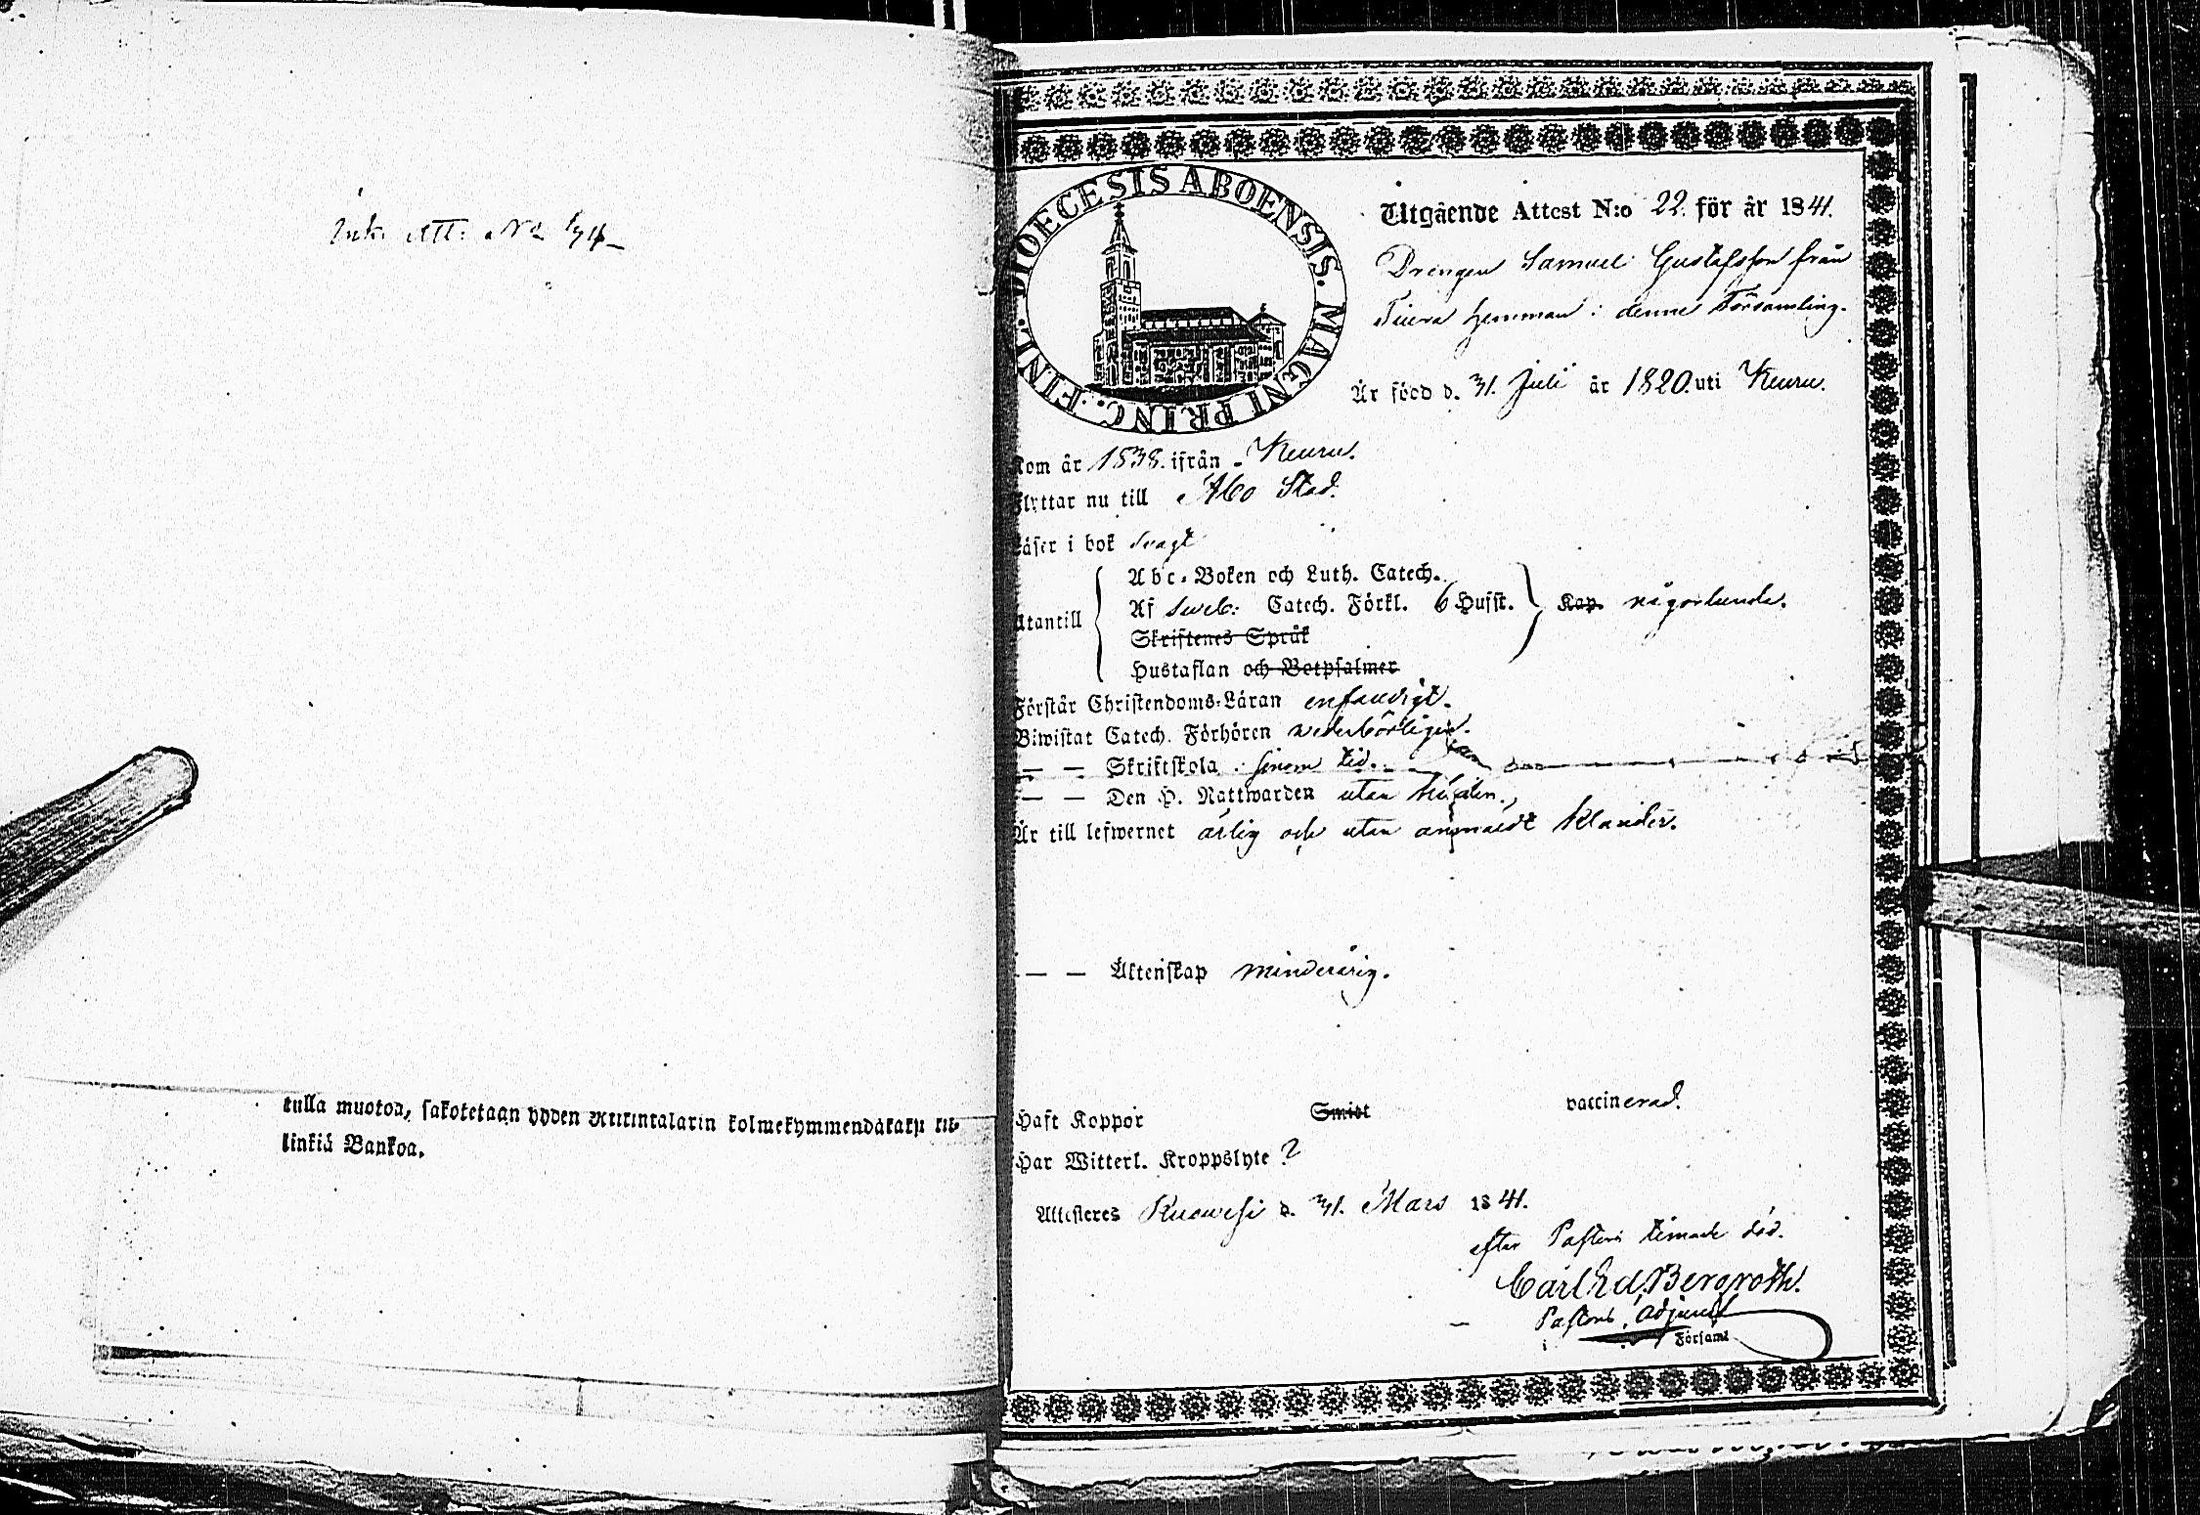 Ink. Att. N2
tulla muotoa, sakotetaan yhden Rikintalarin kolmekymmendäkaksi kil-
linkiä Bankoa.
DIOECESIS ABOENSIS. MAGNI PRINC. FINL.
Utgående Attest N:o 22. för år 1841.
Drengen Samuel Gustafsson från
hemman i denne Församling.
Är född d. 31. Juli år 1820. uti Keuru.
Kom år 1838. ifrån Keuru.
Flyttar nu till Åbo Stad.
Läser i bok svagt
Abc-Boken och Luth. Catech.
Utantill Af Sweb: Catech. Förkl. 6 Hufst. Kap. någorlunda.
Skriftenes Språk
Hustaflan och Botpsalmer
Förstår Christendoms-Läran enfaldigt.
Biwistat Catech. Förhören wederbörligen.
— — Skriftskola sinom tid.
— — Den H. Nattwarden utan hinder.
Är till lefwernet ärlig och utan anmärkt klander.
— — Äktenskap minderårig.
Haft Koppor Smitt vaccinerad.
Har Witterl. Kroppslyte ?
Attesteres Ruowesi d. 31. Mars 1841.
efter Pastors timade död.
Carl Ed. Bergroth.
Pastors Adjunct
Församl